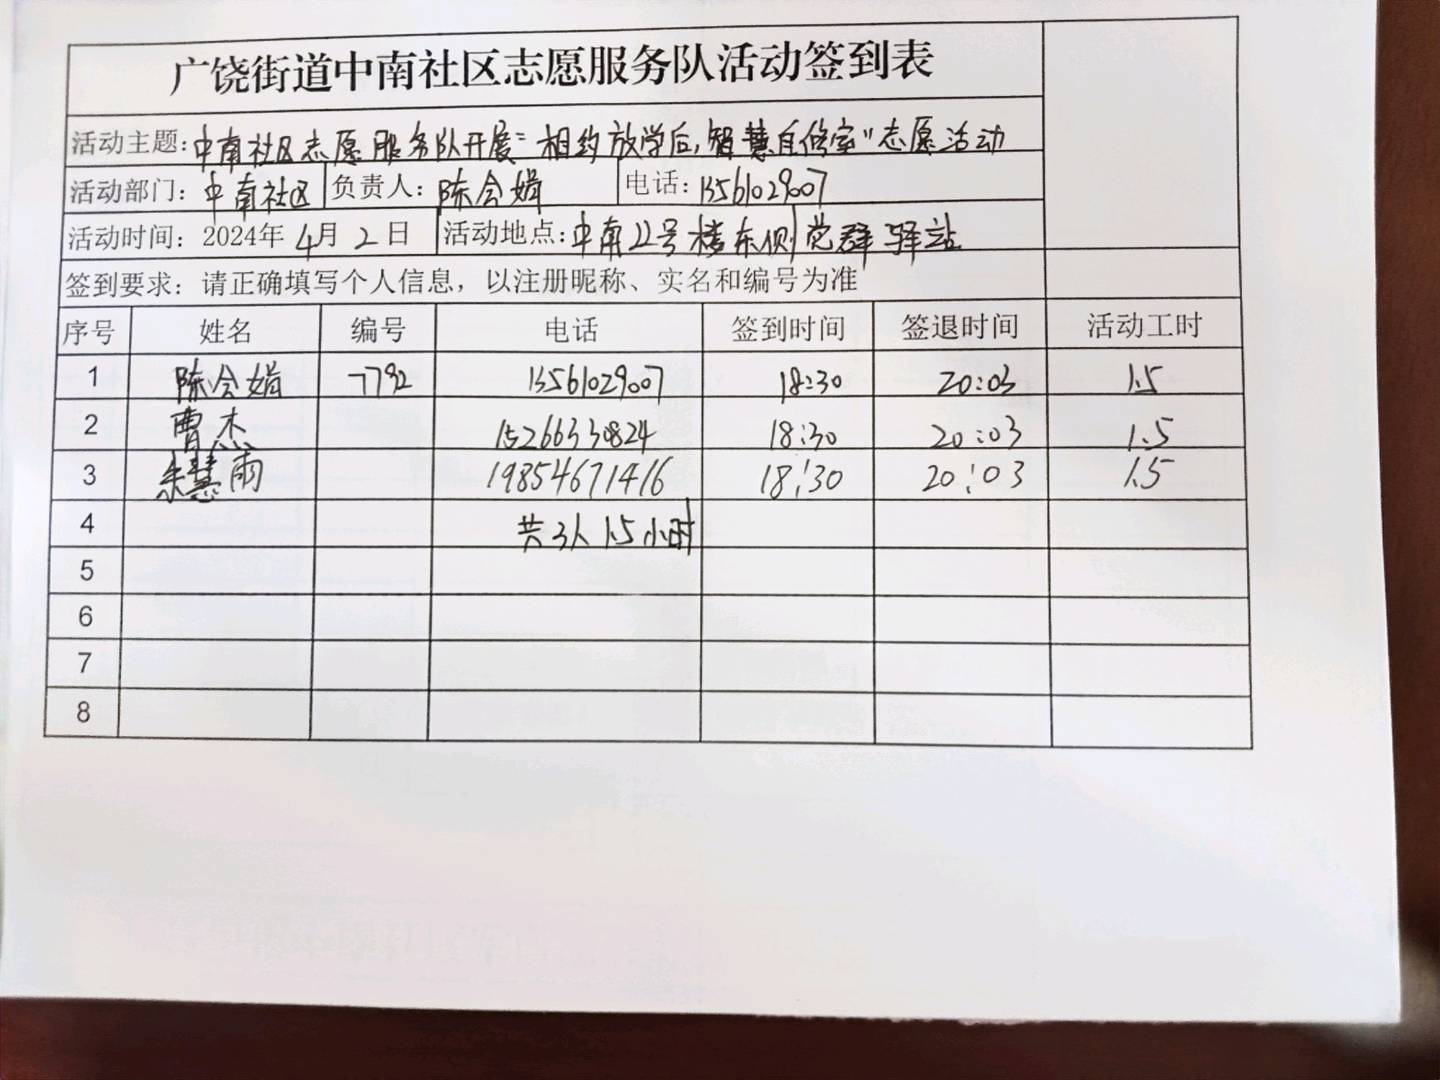 广饶街道中南社区志愿服务队活动签到表
活动主题:中南社区志愿服务队开展"相约放学后,智慧自修室"志愿活动
活动部门:中南社区 负责人:陈会娟 电话:13561029007
活动时间:2024年4月2日 活动地点:中南22号楼东侧党群驿站
签到要求:请正确填写个人信息,以注册昵称、实名和编号为准
序号 姓名 编号 电话 签到时间 签退时间 活动工时
1 陈会娟 7792 13561029007 18:30 20:03 1.5
2 曹杰 15266330824 18:30 20:03 1.5
3 朱慧雨 19854671416 18:30 20:03 1.5
4 共3人 1.5小时
5
6
7
8